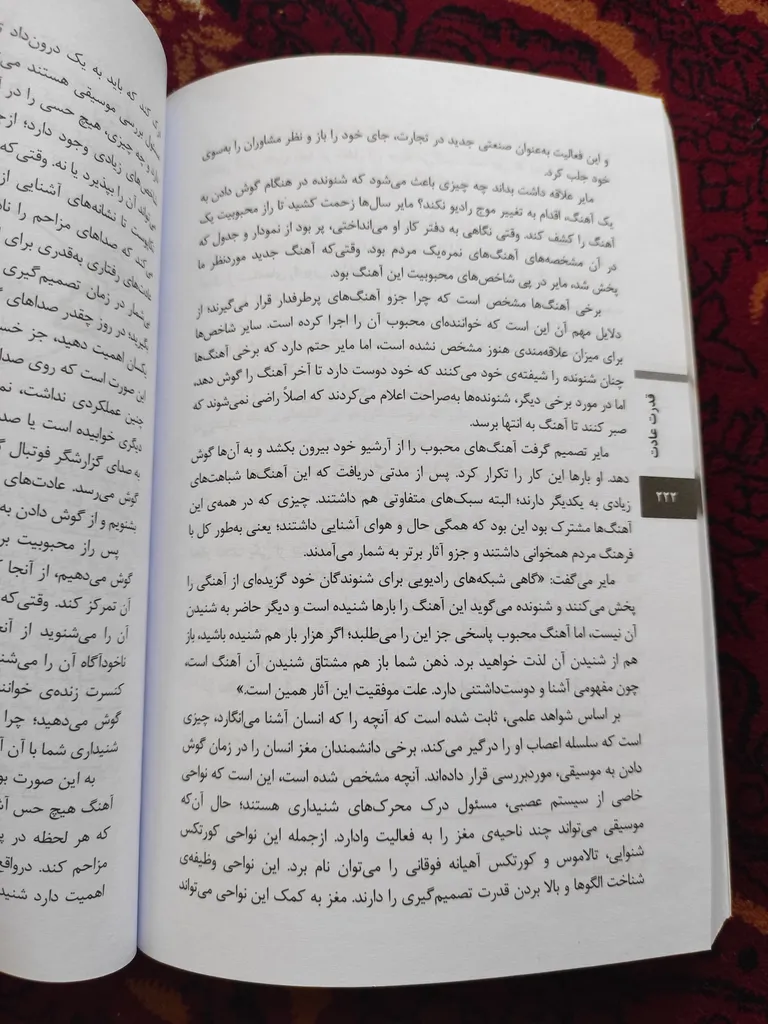 و این فعالیت به‌عنوان صنعتی جدید در تجارت، جای خود را باز و نظر مشاوران را به‌سوی
خود جلب کرد.
مایر علاقه داشت بداند چه چیزی باعث می‌شود که شنونده در هنگام گوش دادن به
یک آهنگ، اقدام به تغییر موج رادیو نکند؟ مایر سال‌ها زحمت کشید تا راز محبوبیت یک
آهنگ را کشف کند. وقتی نگاهی به دفتر کار او می‌انداختی، پر بود از نمودار و جدول که
در آن مشخصه‌های آهنگ‌های نمره‌یک مردم بود. وقتی‌که آهنگ جدید موردنظر ما
پخش شد، مایر در پی شاخص‌های محبوبیت این آهنگ بود.
برخی آهنگ‌ها مشخص است که چرا جزو آهنگ‌های پرطرفدار قرار می‌گیرند؛ از
دلایل مهم آن این است که خواننده‌ای محبوب آن را اجرا کرده است. سایر شاخص‌ها
برای میزان علاقه‌مندی هنوز مشخص نشده است، اما مایر حتم دارد که برخی آهنگ‌ها
چنان شنونده را شیفته‌ی خود می‌کنند که خود دوست دارد تا آخر آهنگ را گوش دهد،
اما در مورد برخی دیگر، شنونده‌ها به‌صراحت اعلام می‌کردند که اصلاً راضی نمی‌شوند که
صبر کنند تا آهنگ به انتها برسد.
مایر تصمیم گرفت آهنگ‌های محبوب را از آرشیو خود بیرون بکشد و به آن‌ها گوش
دهد. او بارها این کار را تکرار کرد. پس از مدتی دریافت که این آهنگ‌ها شباهت‌های
زیادی به یکدیگر دارند؛ البته سبک‌های متفاوتی هم داشتند. چیزی که در همه‌ی این
آهنگ‌ها مشترک بود این بود که همگی حال و هوای آشنایی داشتند؛ یعنی به‌طور کل با
فرهنگ مردم همخوانی داشتند و جزو آثار برتر به شمار می‌آمدند.
مایر می‌گفت: «گاهی شبکه‌های رادیویی برای شنوندگان خود گزیده‌ای از آهنگی را
پخش می‌کنند و شنونده می‌گوید این آهنگ را بارها شنیده است و دیگر حاضر به شنیدن
آن نیست، اما آهنگ محبوب پاسخی جز این را می‌طلبد؛ اگر هزار بار هم شنیده باشید، باز
هم از شنیدن آن لذت خواهید برد. ذهن شما باز هم مشتاق شنیدن آن آهنگ است،
چون مفهومی آشنا و دوست‌داشتنی دارد. علت موفقیت این آثار همین است.»
بر اساس شواهد علمی، ثابت شده است که آنچه را که انسان آشنا می‌انگارد، چیزی
است که سلسله اعصاب او را درگیر می‌کند. برخی دانشمندان مغز انسان را در زمان گوش
دادن به موسیقی، موردبررسی قرار داده‌اند. آنچه مشخص شده است، این است که نواحی
خاصی از سیستم عصبی، مسئول درک محرک‌های شنیداری هستند؛ حال آن‌که
موسیقی می‌تواند چند ناحیه‌ی مغز را به فعالیت وادارد. ازجمله این نواحی کورتکس
شنوایی، تالاموس و کورتکس آهیانه فوقانی را می‌توان نام برد. این نواحی وظیفه‌ی
شناخت الگوها و بالا بردن قدرت تصمیم‌گیری را دارند. مغز به کمک این نواحی می‌تواند
قدرت عادت
۲۲۲
کند که باید به یک درون‌داد
بررسی موسیقی هستند
چه چیزی، هیچ حسی را در
زیادی وجود دارد؛
آن را بپذیرد یا نه. وقتی که
تا نشانه‌های آشنایی از
کند که صداهای مزاحم را
رفتاری به‌قدری برای
در زمان تصمیم‌گیری
در روز چقدر صداهای
یکسان اهمیت دهید، جز
این صورت است که روی
چنین عملکردی نداشت،
دیگری خوابیده است یا
به صدای گزارشگر فوتبال
گوش می‌رسد. عادت‌های
بشنویم و از گوش دادن به
پس راز محبوبیت
گوش می‌دهیم، از آنجا
آن تمرکز کند. وقتی‌که
آن را می‌شنوید از
ناخودآگاه آن را
کنسرت زنده‌ی
گوش می‌دهید؛ چرا
شنیداری شما با آن
به این صورت
آهنگ هیچ حس
که هر لحظه در
مزاحم کند.
اهمیت دارد